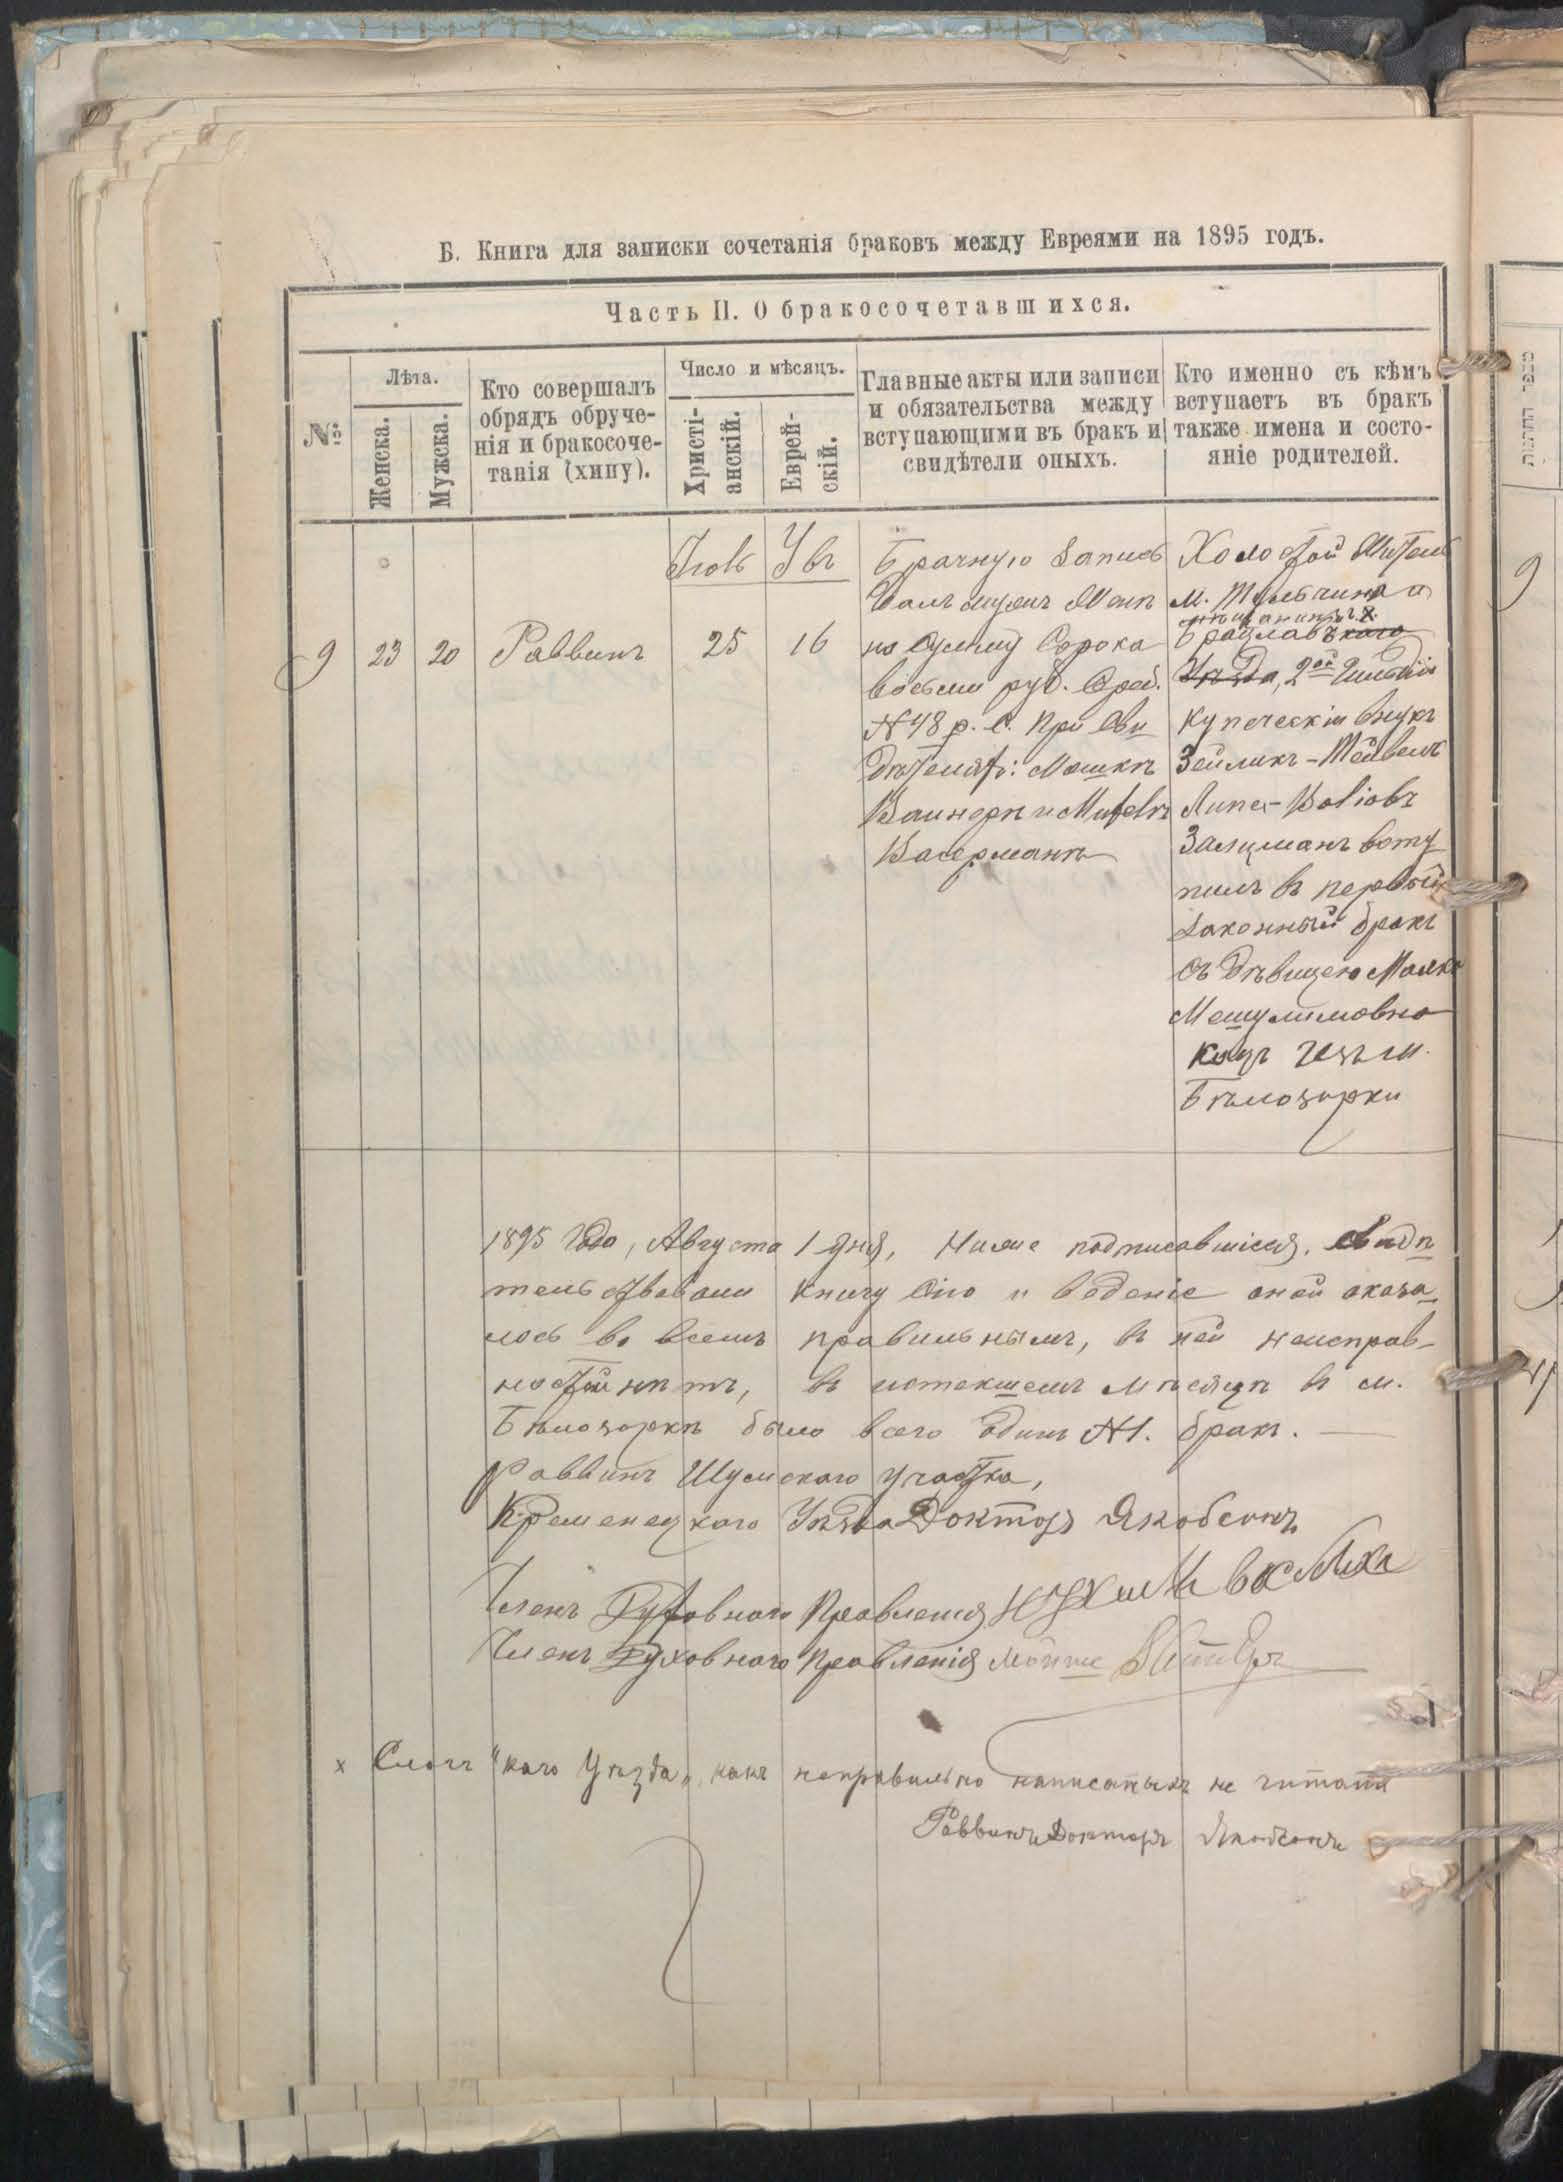 Б. Книга для записки сочетанія браковъ между Евреями на 1895 годъ.
Часть II. О бракосочетавшихся.
№
Лѣта.
Женска.
Мужска.
Кто совершалъ
обрядъ обруче-
нія и бракосоче-
танія (хипу).
Число и мѣсяцъ.
Христі-
анскій.
Еврей-
скій.
Главные акты или записи
и обязательства между
вступающими въ бракъ и
свидѣтели оныхъ.
Кто именно съ кѣмъ
вступаетъ въ бракъ
также имена и состо-
яніе родителей.
9
23
20
Раввинъ
25
16
Брачную Запись
далъ мужъ
на Сумму Сорока
восьми руб. Сереб.
№ 48 р. С. При Сви
дѣтеляхъ: Мошкѣ
Вайнеръ и
Васерманъ
Холостой
м. Тульчина и
мѣщанинъ х.
Брацлавъ каго
Уѣзда, 2ой Гильдіи
купеческій внукъ
Зейликъ-Тевель
Липа-Волiовъ
Залцманъ всту
пилъ въ первый
законный бракъ
съ дѣвицею Малка
Мешулимовна
Кацъ изъ м.
Бѣлозорки
1895 года, Августа 1 дня, Ниже подписавшіеся, свидѣ
тельствовали книгу сію и веденіе оной оказа
лось во всемъ правильнымъ, въ ней неисправ-
ностей нѣтъ, въ истекшемъ мѣсяцѣ въ м.
Бѣлозоркѣ было всего одинъ №1. бракъ.
Раввинъ Шумскаго участка,
Кременецкаго Уѣзда Докторъ Якобсонъ
Членъ Духовнаго Правленія
Членъ Духовнаго Правленія Мойше
х Словъ "каго Уѣзда„ какъ неправильно написаныхъ не читать
Раввинъ Докторъ Якобсонъ
9